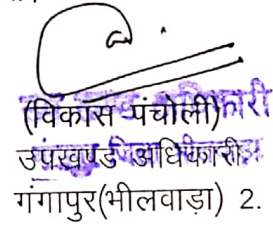 (विकास पंचोली)
उपखण्ड अधिकारी
गंगापुर(भीलवाड़ा) 2.